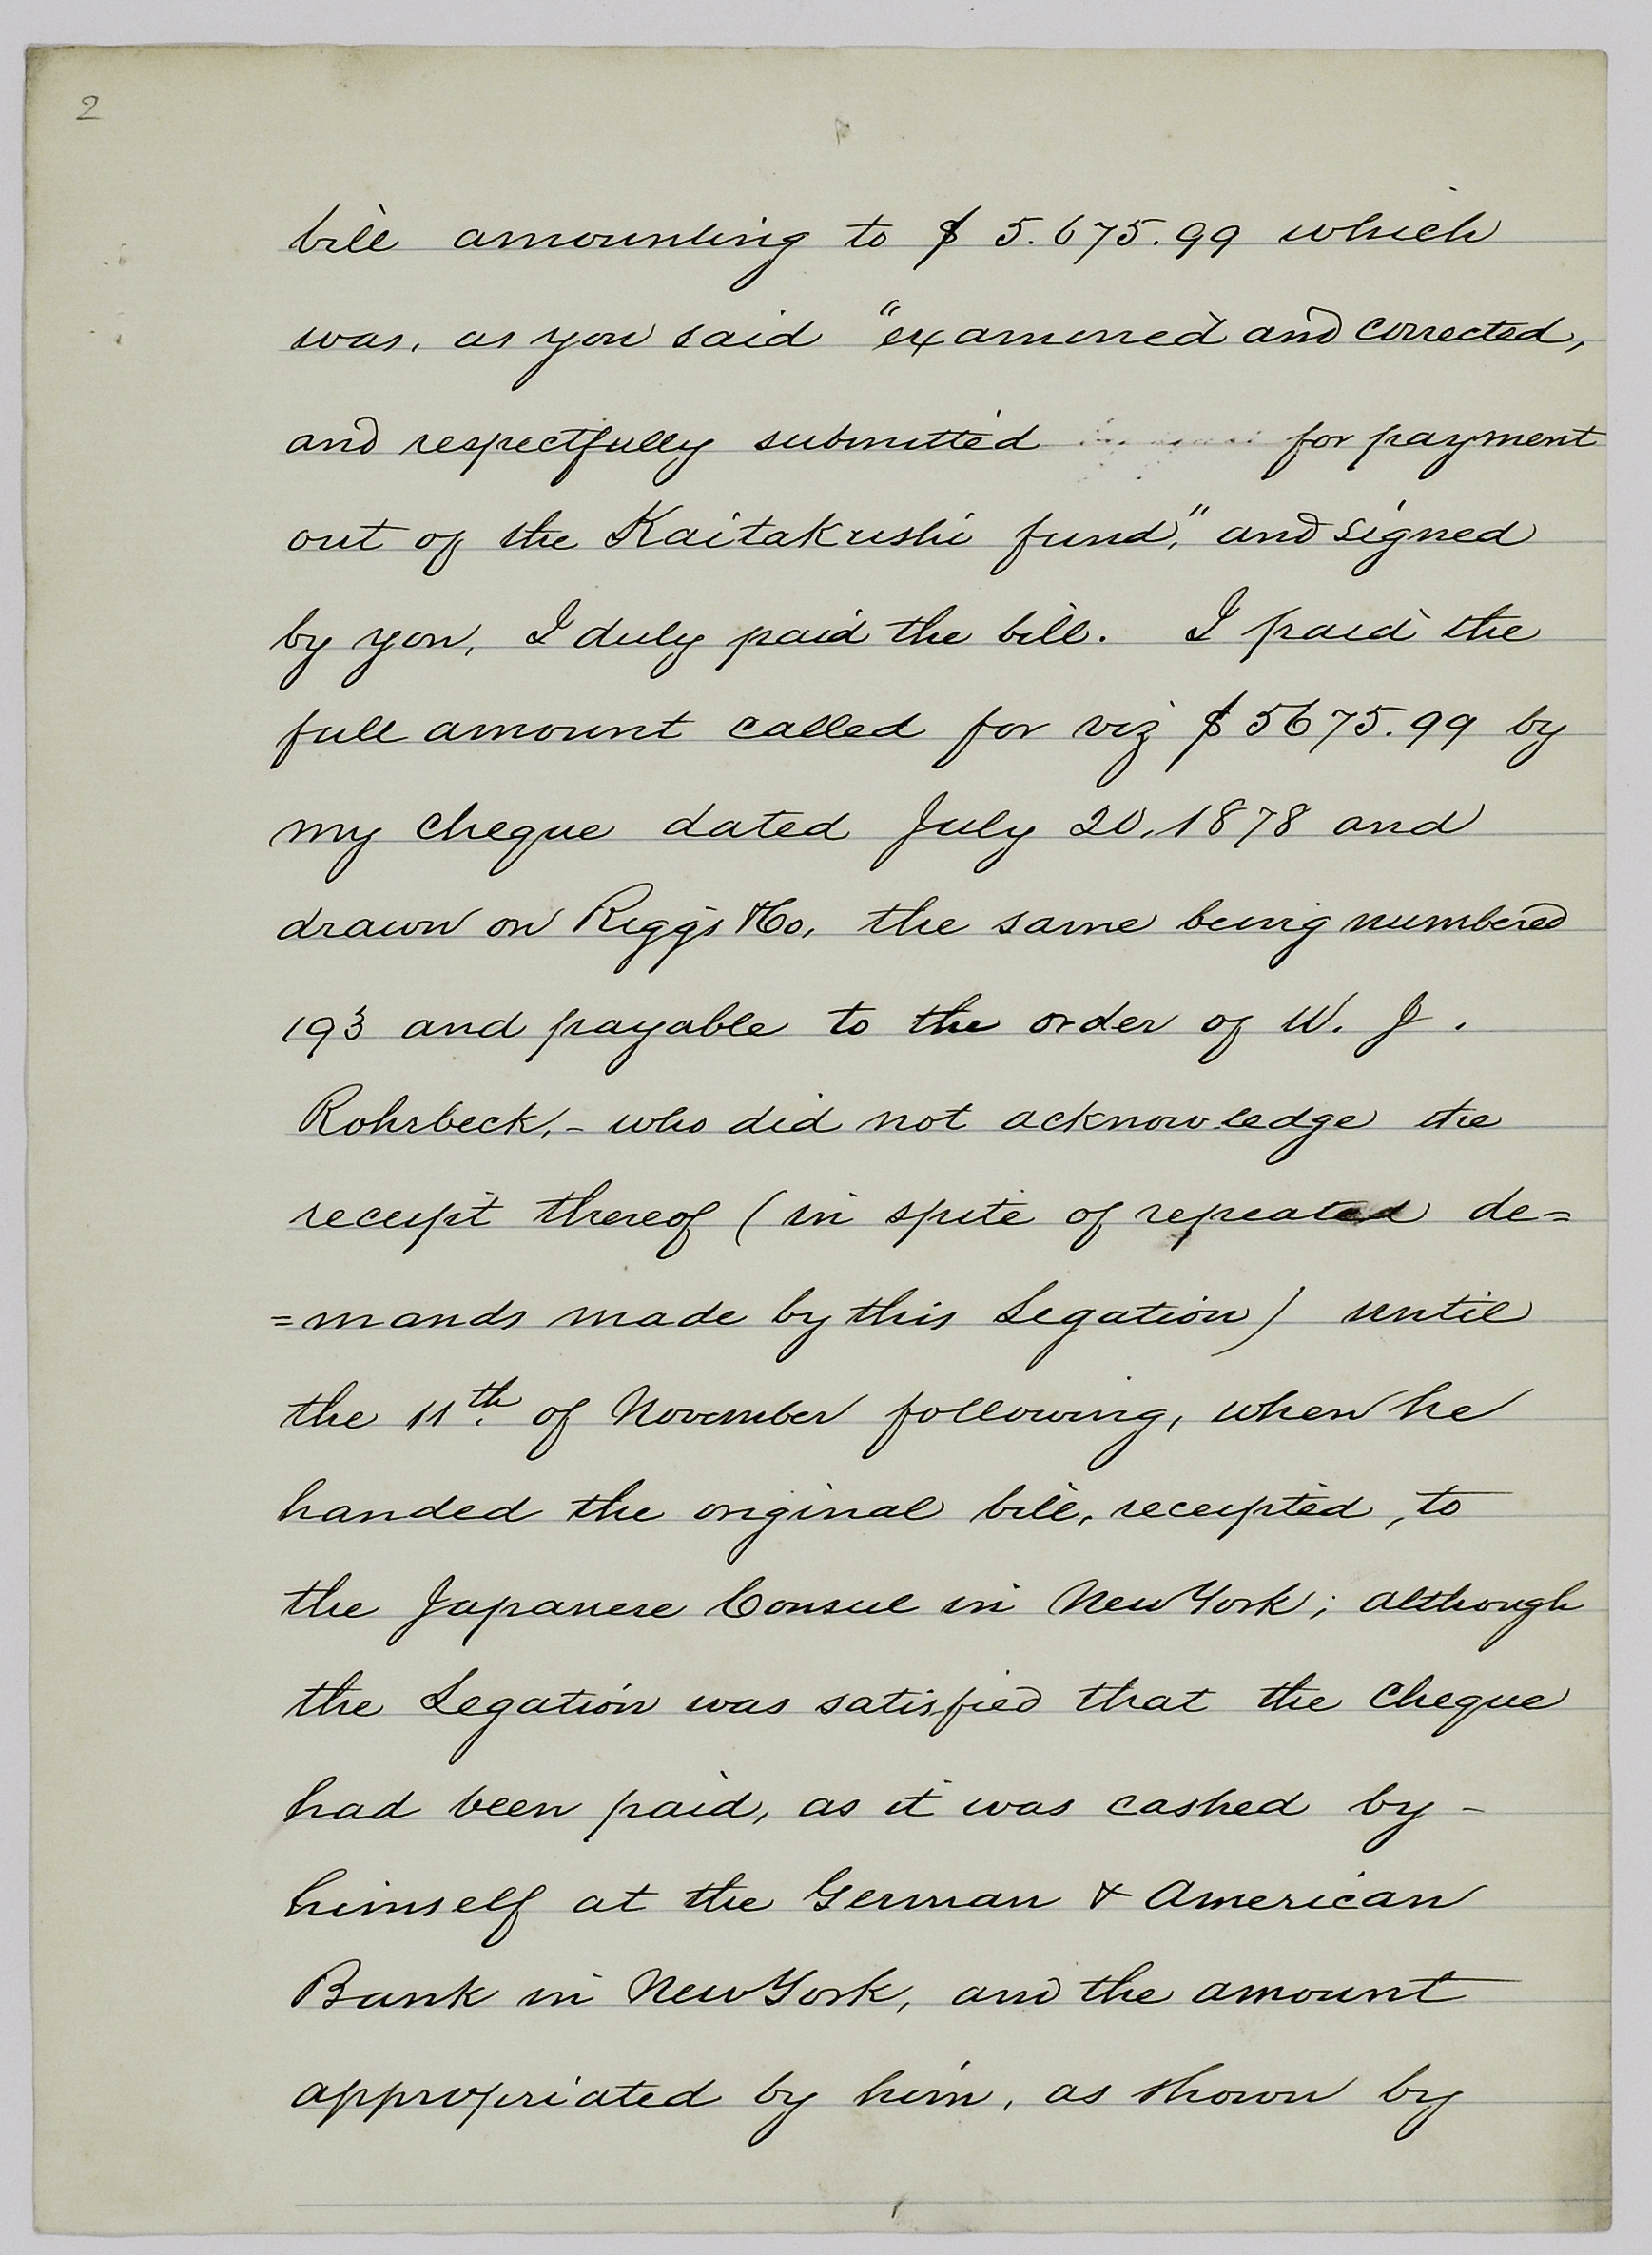 2
bill amounting to $ 5.675.99 which
was, as you said "examined and corrected,
and respectfully submitted for payment
out of the Kaitakushi fund," and signed
by you, I duly paid the bill. I paid the
full amount called for viz $5675.99 by
my cheque dated July 20, 1878 and
drawn on Riggs & Co, the same being numbered
193 and payable to the order of W. J.
Rohrbeck, - who did not acknowledge the
receipt thereof (in spite of repeated de=
=mands made by this Legation) until
the 11th of November following, when he
handed the original bill, receipted, to
the Japanese Consul in New York; although
the Legation was satisfied that the cheque
had been paid, as it was cashed by -
himself at the German & American
Bank in New York, and the amount
appropriated by him, as shown by